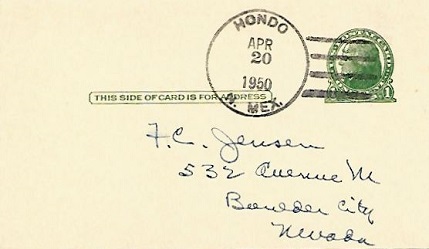 HONDO
APR
20
1950
N. MEX.
1
THIS SIDE OF CARD IS FOR ADDRESS
F.C. Jensen
532 Avenue M
Boulder City
Nevada